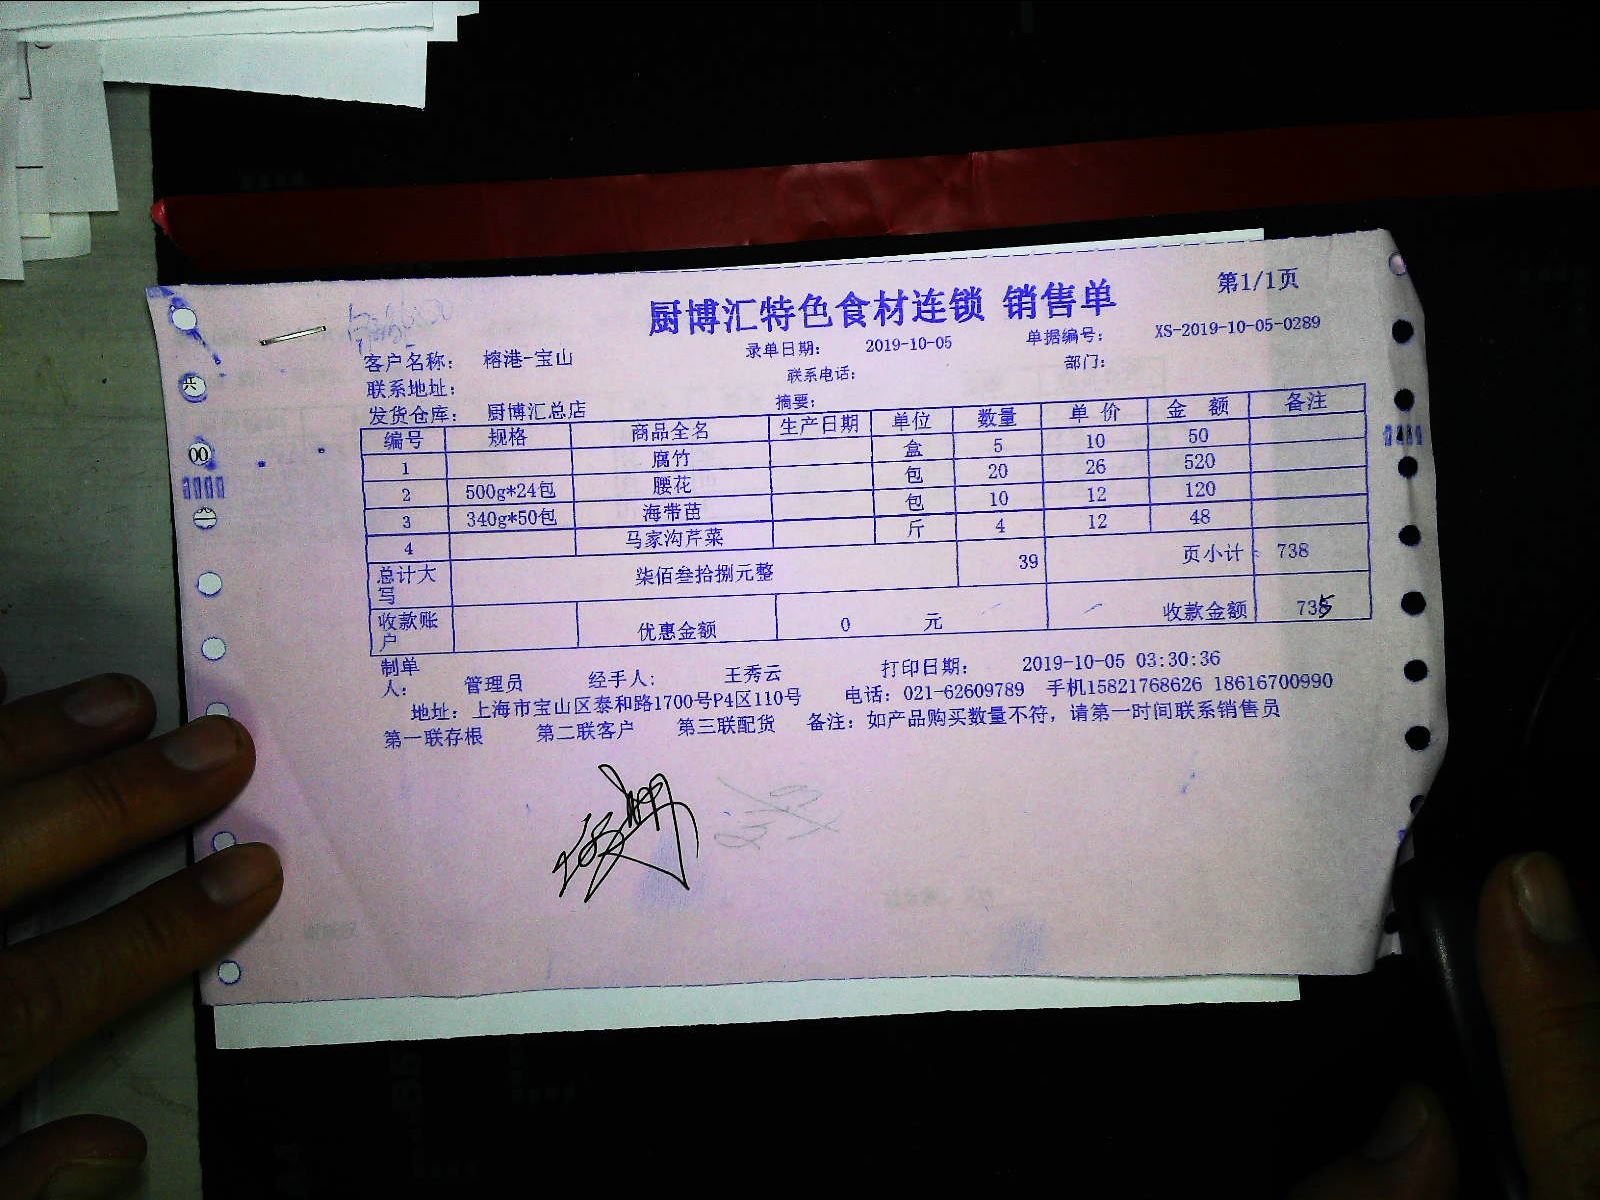 厨博汇特色食材连锁 销售单 第1/1页
客户名称： 榕港-宝山 录单日期： 2019-10-05 单据编号： XS-2019-10-05-0289
联系地址： 联系电话： 部门：
发货仓库： 厨博汇总店 摘要：
编号 规格 商品全名 生产日期 单位 数量 单价 金额 备注
1 腐竹 盒 5 10 50
2 500g*24包 腰花 包 20 26 520
3 340g*50包 海带苗 包 10 12 120
4 马家沟芹菜 斤 4 12 48
总计大写 柒佰叁拾捌元整 39 页小计： 738
收款账户 优惠金额 0 元 收款金额 735
制单人： 管理员 经手人： 王秀云 打印日期： 2019-10-05 03:30:36
地址：上海市宝山区泰和路1700号P4区110号 电话：021-62609789 手机15821768626 18616700990
第一联存根 第二联客户 第三联配货 备注：如产品购买数量不符，请第一时间联系销售员